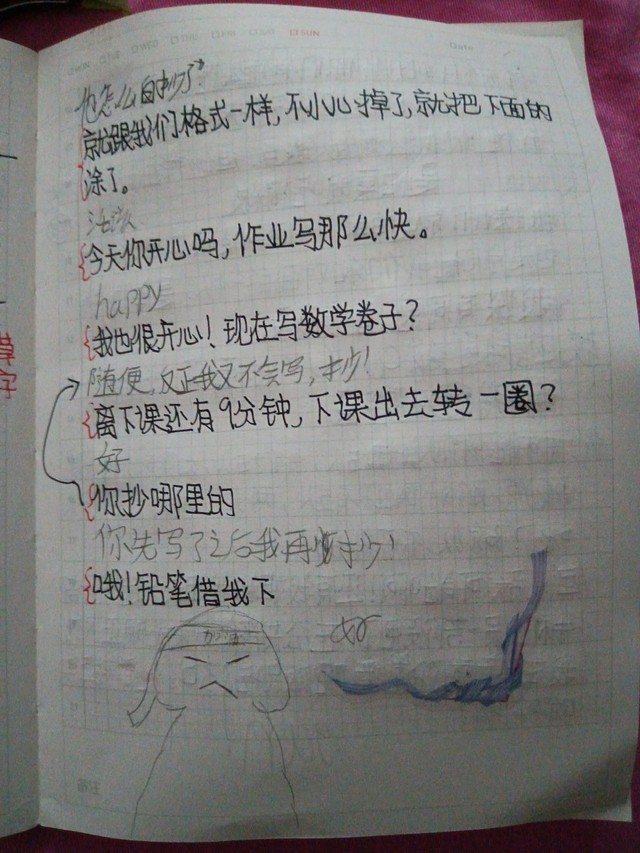 SUN
他怎么自抄了?
就跟我们格式一样,不小心掉了,就把下面的
涂了。
今天你开心吗,作业写那么快。
happy
我也很开心!现在写数学卷子?
随便,反正我又不会写,抄!
离下课还有9分钟,下课出去转一圈?
好
你抄哪里的
你先写了之后我再抄!
哦!铅笔借我下